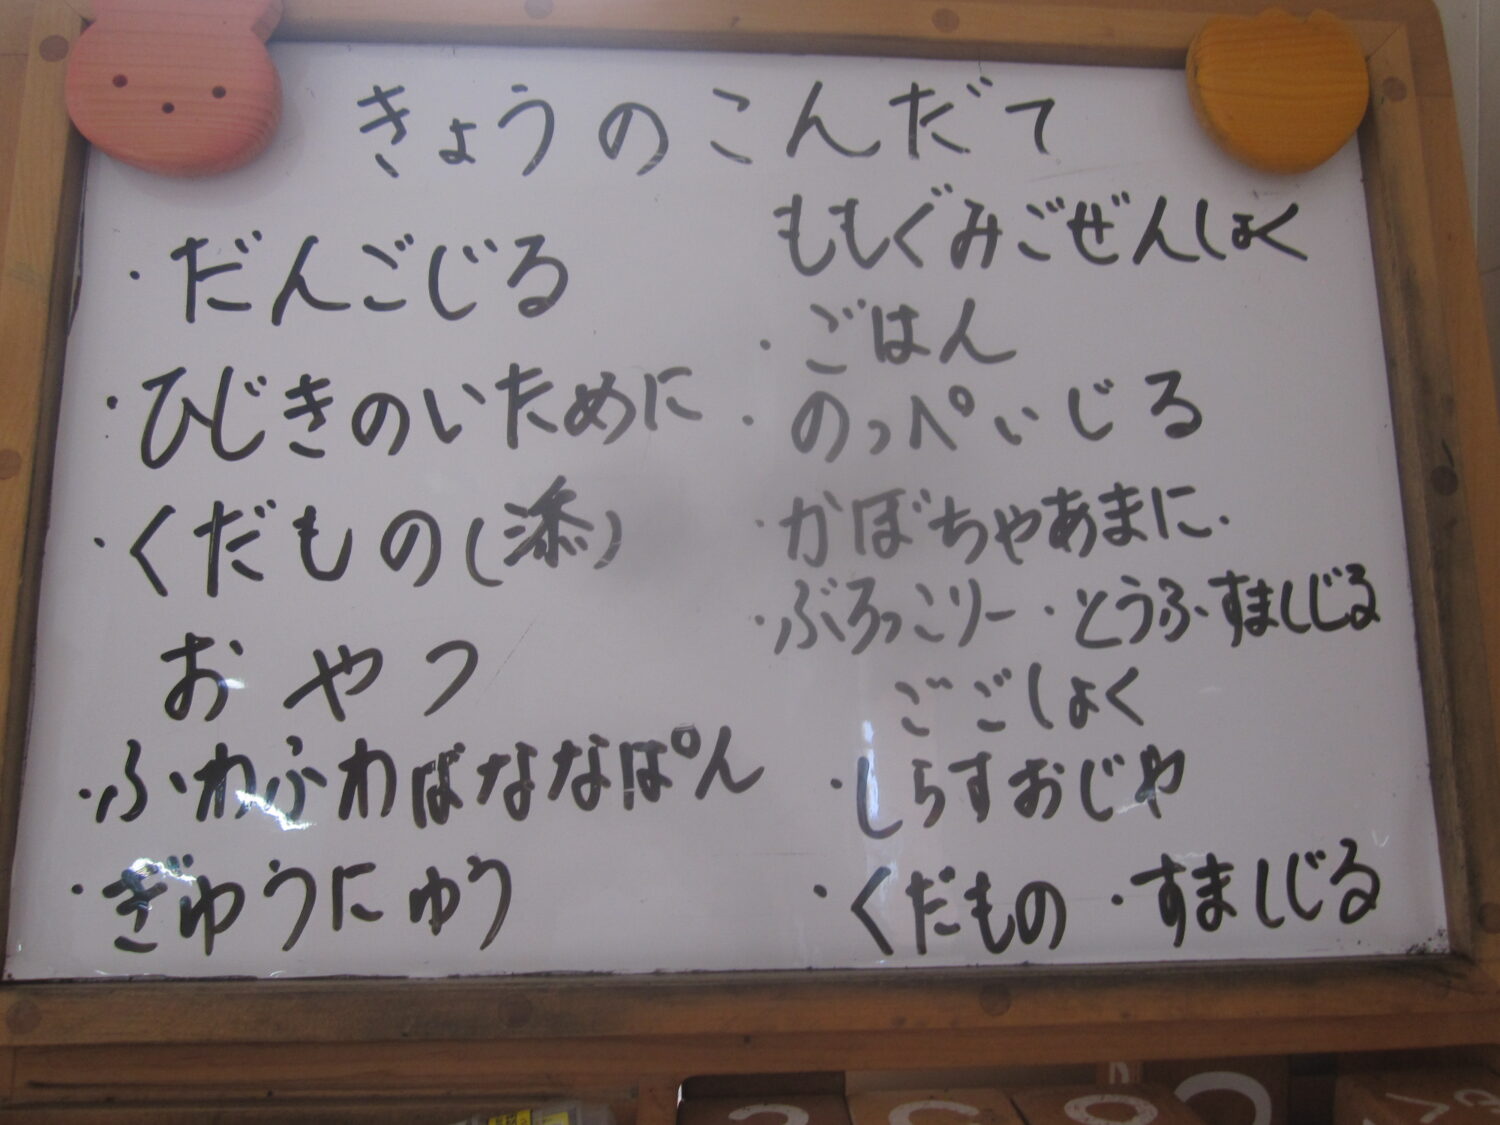 きょうのこんだて
・だんごじる
・ひじきのいために
・くだもの(添)
おやつ
・ふわふわばななぱん
・ぎゅうにゅう
ももぐみごぜんしょく
・ごはん
・のっぺいじる
・かぼちゃあまに・
・ぶろっこりー・とうふ・すましじる
ごごしょく
・しらすおじや
・くだもの・すましじる